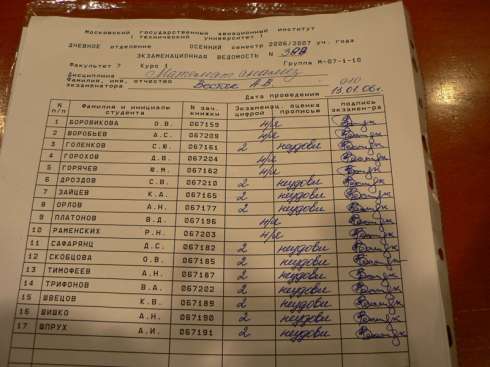 Московский государственный авиационный институт
( технический университет )
ДНЕВНОЕ отделение ОСЕННИЙ семестр 2006/2007 уч. года
ЭКЗАМЕНАЦИОННАЯ ВЕДОМОСТЬ N
Факультет 7 Курс 1 Группа М-07-1-10
Дисциплина
Фамилия, имя, отчество
экзаменатора
Дата проведения
N п/п Фамилия и инициалы студента N зач. книжки Экзаменац. оценка цифрой прописью подпись экзамен-ра
1 БОРОВИКОВА О.В. 067159 н/я
2 ВОРОБЬЕВ А.С. 067209 н/я
3 ГОЛЕНКОВ С.Ю. 067161 2 неудовл
4 ГОРОХОВ Д.В. 067204 н/я
5 ГОРЯЧЕВ Ю.М. 067162 н/я
6 ДРОЗДОВ С.В. 067210 2 неудовл
7 ЗАЙЦЕВ К.А. 067165 2 неудовл
8 ОРЛОВ А.Н. 067177 2 неудовл
9 ПЛАТОНОВ В.Д. 067196 н/я
10 РАМЕНСКИХ Р.Н. 067203 н/я
11 САФАРЯНЦ Д.С. 067182 2 неудовл
12 СКОБЦОВА О.В. 067185 2 неудовл
13 ТИМОФЕЕВ А.Н. 067187 2 неудовл
14 ТРИФОНОВ В.А. 067202 2 неудовл
15 ШВЕЦОВ К.В. 067189 2 неудовл
16 ШИШКО А.Н. 067190 2 неудовл
17 ШПРУХ А.И. 067191 2 неудовл